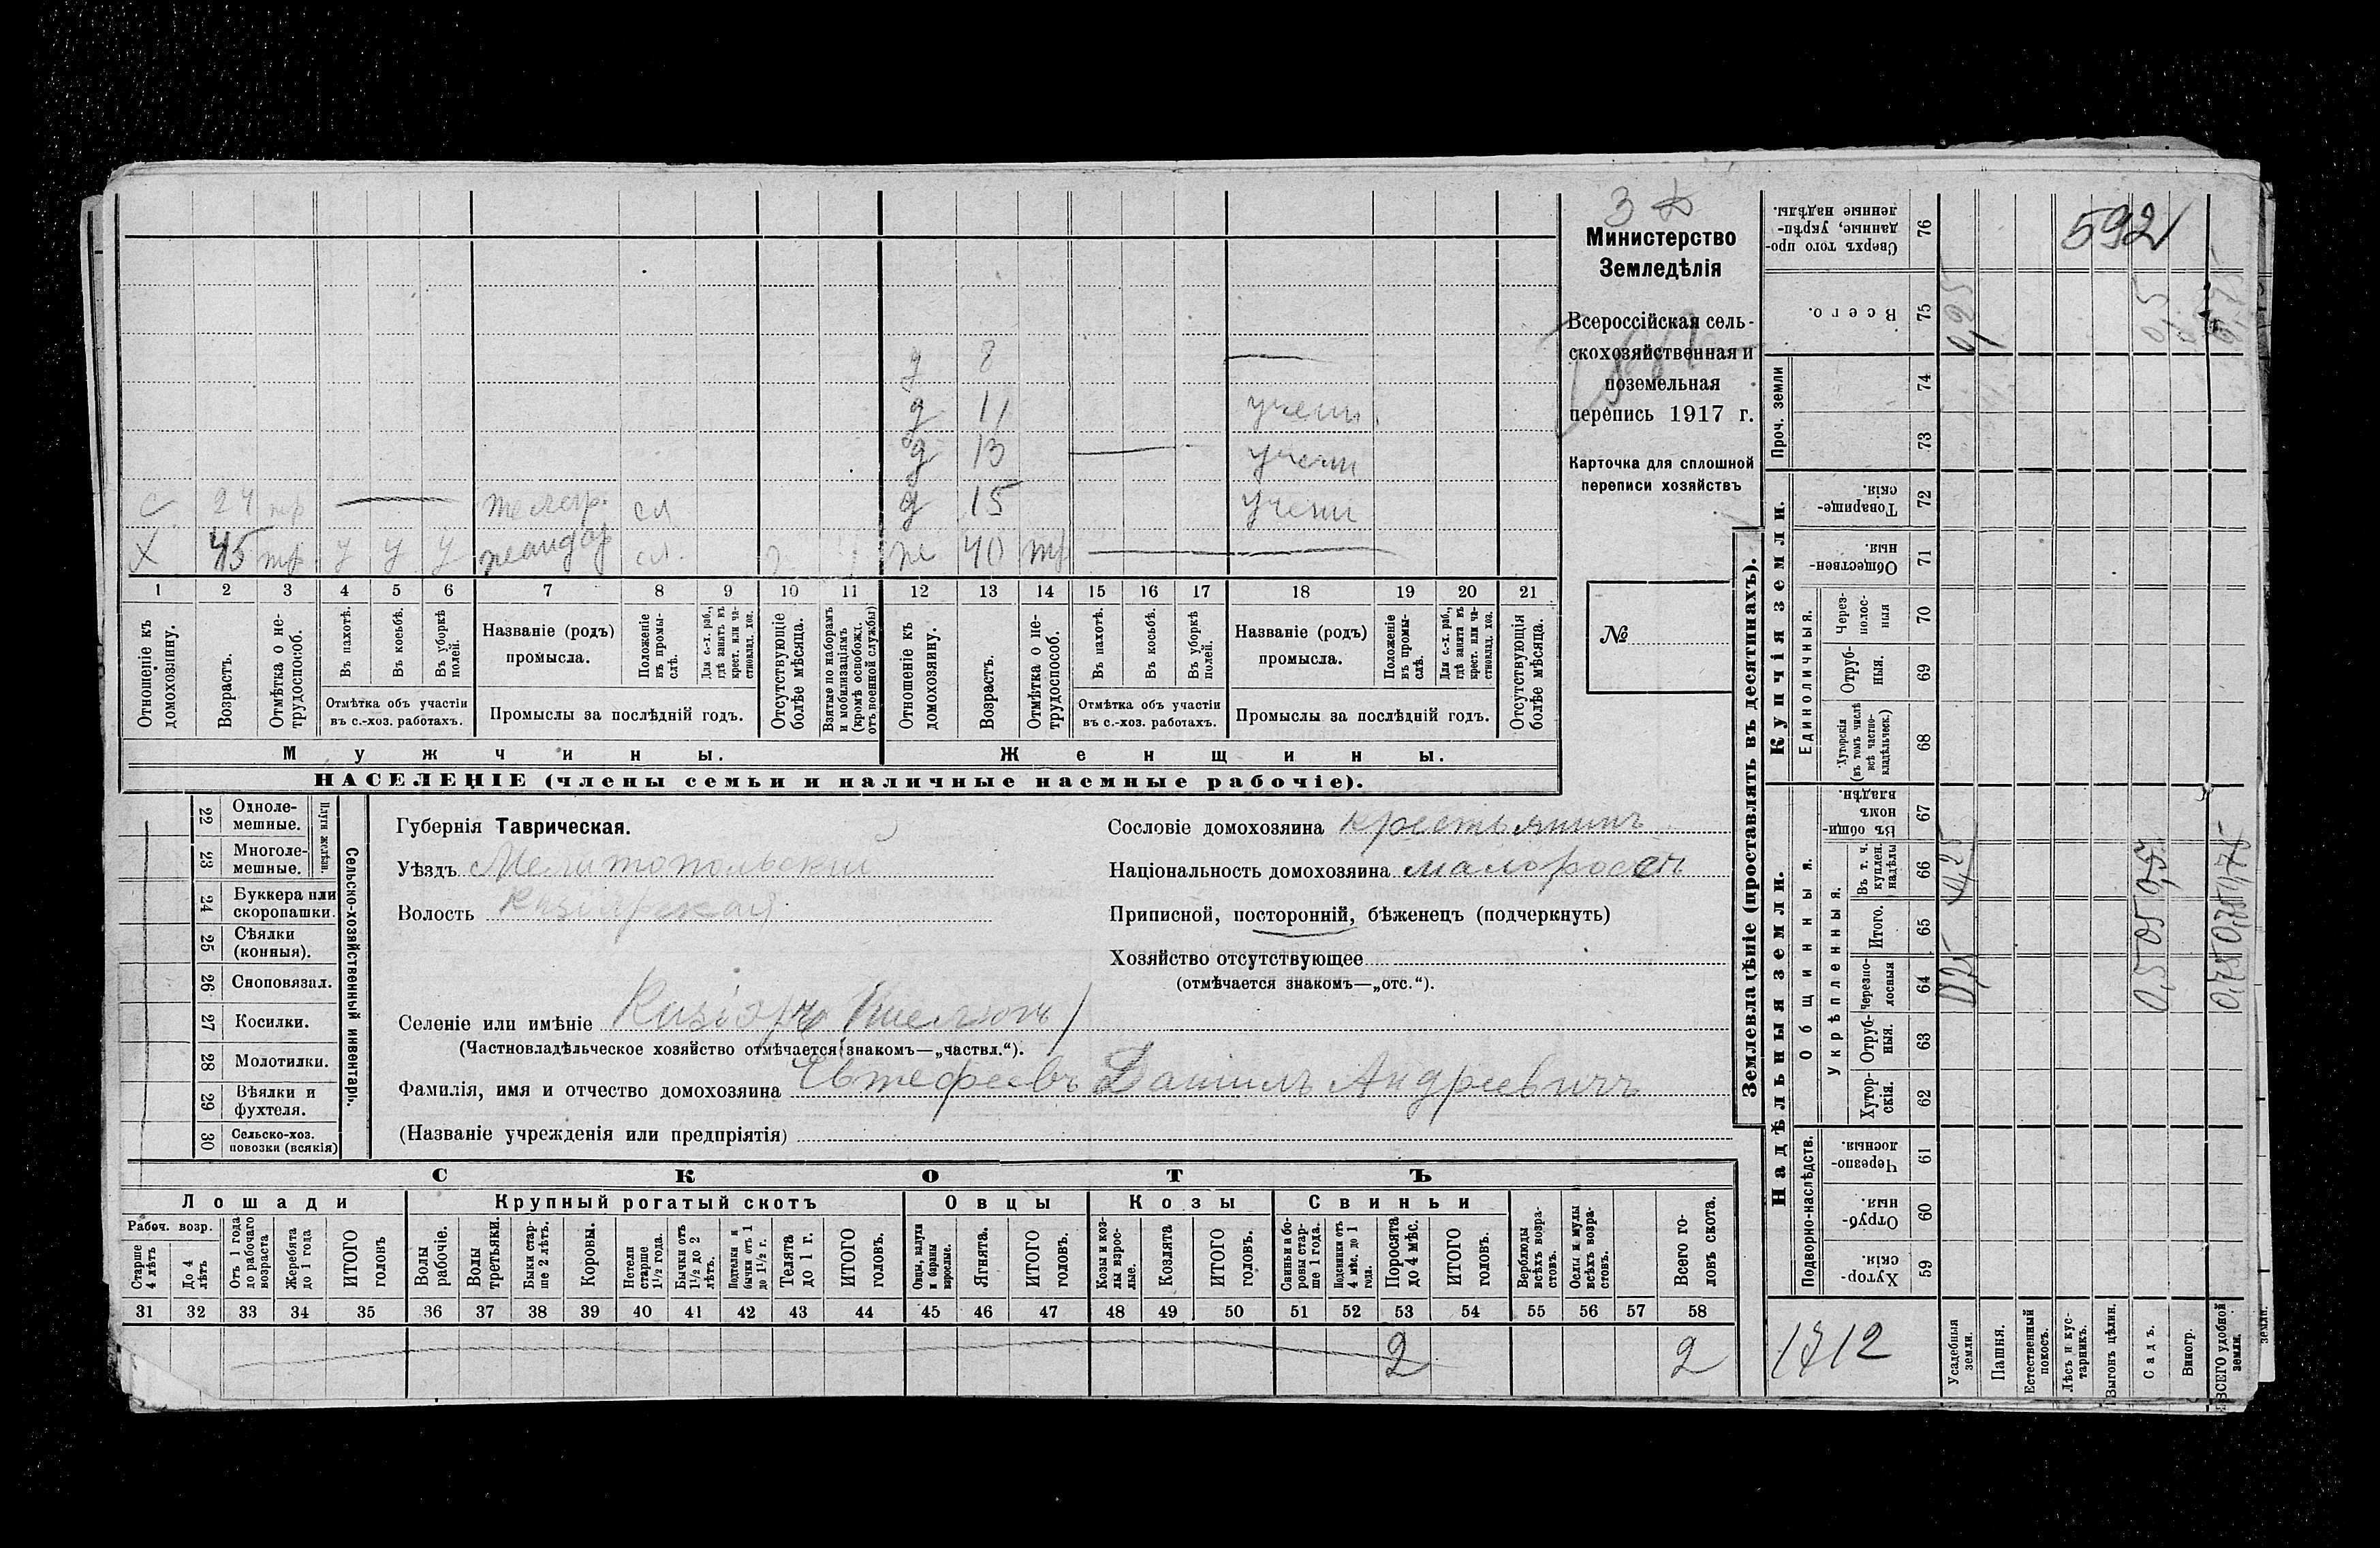 3
Министерство
Земледѣлія
Всероссійская сель-
скохозяйственная и
поземельная
перепись 1917 г.
Карточка для сплошной
переписи хозяйствъ
№
592
д 8
д 11 учени
д 13 учени
с 24 тр телегр. сл д 15 учени
х 45 тр у у у сл. ж 40 тр
1 2 3 4 5 6 7 8 9 10 11 12 13 14 15 16 17 18 19 20 21
Отношеніе къ домохозяину.
Возрастъ.
Отмѣтка о не-трудоспособ.
Въ пахотѣ.
Въ косьбѣ.
Въ уборкѣ полей.
Отмѣтка объ участіи
въ с.-хоз. работахъ.
Названіе (родъ)
промысла.
Положеніе въ промы-слѣ.
Для с.-х. раб., гдѣ занятъ въ крест. или ча-стновлад. хоз.
Промыслы за послѣдній годъ.
Отсутствующіе болѣе мѣсяца.
Взятые по наборамъ и мобилизаціямъ (кромѣ освобожд. отъ военной службы)
Отношеніе къ домохозяину.
Возрастъ.
Отмѣтка о не-трудоспособ.
Въ пахотѣ.
Въ косьбѣ.
Въ уборкѣ полей.
Отмѣтка объ участіи
въ с.-хоз. работахъ.
Названіе (родъ)
промысла.
Положеніе въ промы-слѣ.
Для с.-х. раб., гдѣ занята въ крест. или ча-стновлад. хоз.
Промыслы за послѣдній годъ.
Отсутствующія болѣе мѣсяца.
Мужчины.
Женщины.
НАСЕЛЕНІЕ (члены семьи и наличные наемные рабочіе).
22 Одноле-мешные.
23 Многоле-мешные.
Плуги желѣзн.
24 Буккера или скоропашки.
25 Сѣялки (конныя).
26 Сноповязал.
27 Косилки.
28 Молотилки.
29 Вѣялки и фухтеля.
30 Сельско-хоз. повозки (всякія)
Сельско-хозяйственный инвентарь.
Губернія Таврическая.
Уѣздъ Мелитопольскій
Волость Кизіярская
Селеніе или имѣніе Кизіяръ
(Частновладѣльческое хозяйство отмѣчается знакомъ—„частвл.“).
Фамилія, имя и отчество домохозяина Евтефеевъ Данiилъ Андреевичъ
(Названіе учрежденія или предпріятія)
Сословіе домохозяина крестьянинъ
Національность домохозяина малороссъ
Приписной, посторонній, бѣженецъ (подчеркнуть)
Хозяйство отсутствующее
(отмѣчается знакомъ—„отс.“).
СКОТЪ
Лошади
Крупный рогатый скотъ
Овцы
Козы
Свиньи
Рабоч. возр.
Старше 4 лѣтъ
До 4 лѣтъ
Отъ 1 года до рабочаго возраста
Жеребята до 1 года
ИТОГО головъ
Волы рабочіе.
Волы третьяки.
Быки стар-ше 2 лѣтъ.
Коровы.
Нетели старше 1½ года.
Бычки отъ 1½ до 2 лѣтъ.
Подтелки и бычки отъ 1 до 1½ г.
Телята до 1 г.
ИТОГО головъ.
Овцы, валухи и бараны взрослые.
Ягнята.
ИТОГО головъ.
Козы и коз-лы взрос-лые.
Козлята
ИТОГО головъ.
Свиньи и бо-ровы стар-ше 1 года.
Подсвинки отъ 4 мѣс. до 1 года.
Поросята до 4 мѣс.
ИТОГО головъ.
Верблюды всѣхъ возра-стовъ.
Ослы и мулы всѣхъ возра-стовъ.
Всего го-ловъ скота.
31 32 33 34 35 36 37 38 39 40 41 42 43 44 45 46 47 48 49 50 51 52 53 54 55 56 57 58
2 2
Землевладѣніе (проставлять въ десятинахъ).
Купчія земли.
Надѣльныя земли.
Проч. земли
Единоличныя.
Общинныя.
Укрѣпленныя.
Подворно-наслѣдств.
Сверхъ того про-даные, укрѣп-ленные надѣлы. 76
Всего. 75
74
73
Товарище-скія. 72
Обществен-ныя. 71
Через-полос-ныя 70
Отруб-ныя. 69
Хуторскія (въ томъ числѣ всѣ частно-владѣльческ.) 68
Въ общи-номъ владѣн. 67
Въ т. ч. куплен. надѣлы 66
Итого. 65
Черезпо-лосныя 64
Отруб-ныя. 63
Хутор-скія. 62
Черезпо-лосныя. 61
Отруб-ныя. 60
Хутор-скія. 59
1712
Усадебныя земли.
Пашня.
Естественный покосъ.
Лѣсъ и кус-тарникъ.
Выгонъ цѣлин.
Садъ.
Виногр.
ВСЕГО удобной земли.
земли.